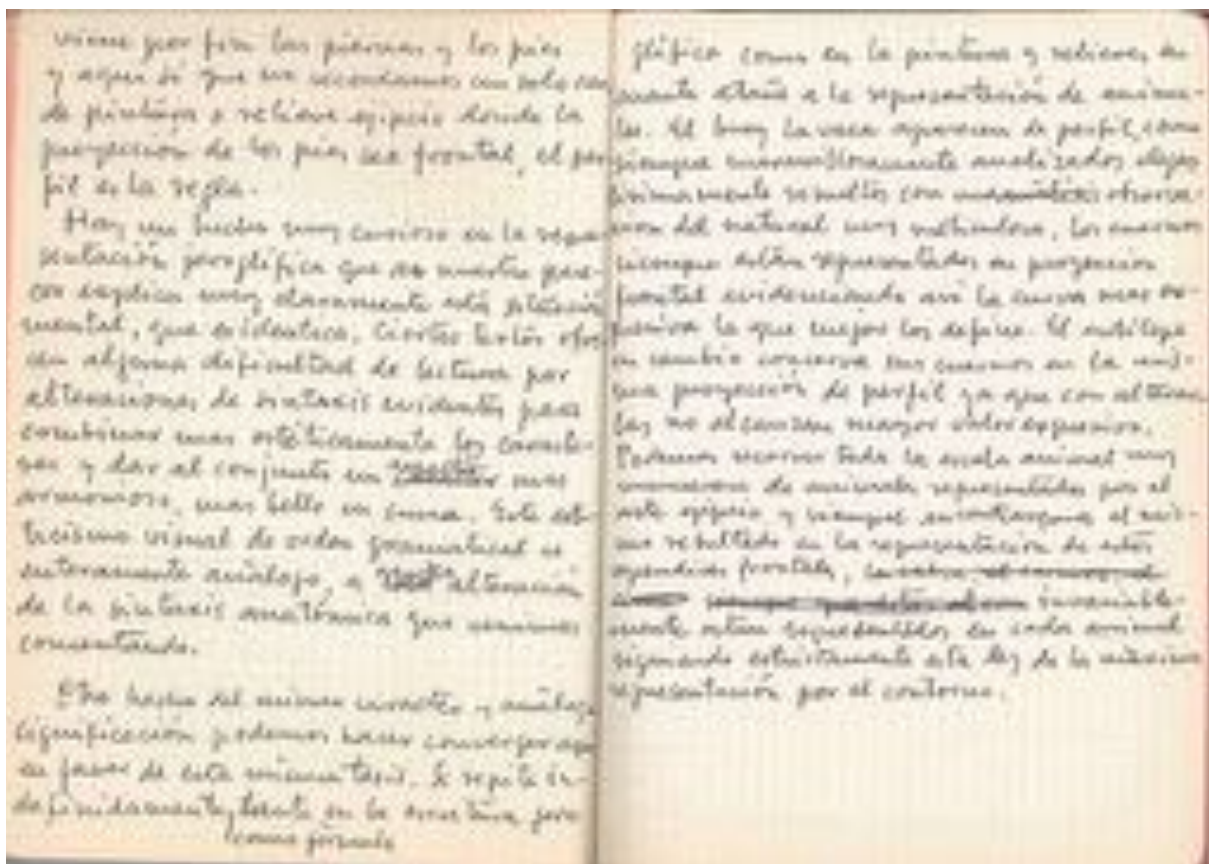 viene por fin las piernas y los pies
y aquí sí que no recordamos un solo caso
de pintura o relieve egipcio donde la
proyección de los pies sea frontal, el per-
fil es la regla.
Hay un hecho muy curioso en la repre-
sentación jeroglífica que a nuestro pare-
cer explica muy claramente esta situación
mental, que es identica. Ciertos textos ofre-
cen alguna dificultad de lectura por
alteraciones de sintaxis evidentes para
combinar mas estéticamente los caracte-
res y dar al conjunto un mas
armonioso, mas bello en suma. Este es-
ticismo visual de orden gramatical es
enteramente análogo, a alteración
de la sintaxis anatómica que venimos
comentando.
Otro hecho del mismo carácter y análoga
significación podemos hacer converger aquí
en favor de esta misma tesis. Se repite in-
definidamente, tanto en la escritura jero-
glífica como en la pintura y relieves, en
cuanto atañe a la representación de anima-
les. El buey la vaca aparecen de perfil, como
siempre maravillosamente analizados
resueltos con observa-
cion del natural muy meticulosa, los cuernos
siempre están representados en proyección
frontal evidenciando así la curva mas ex-
presiva la que mejor los define. El antílope
en cambio conserva sus cuernos en la mis-
ma proyección de perfil ya que con alterar
las no alcanzan mayor valor expresivo.
Podemos recorrer toda la escala animal muy
numerosa de animales representados por el
arte egipcio y siempre encontraremos el mis-
mo resultado en la representación de estos
apendices frontales, invariable-
mente estan representados en cada animal
siguiendo estrictamente esta ley de la máxima
representación por el contorno.